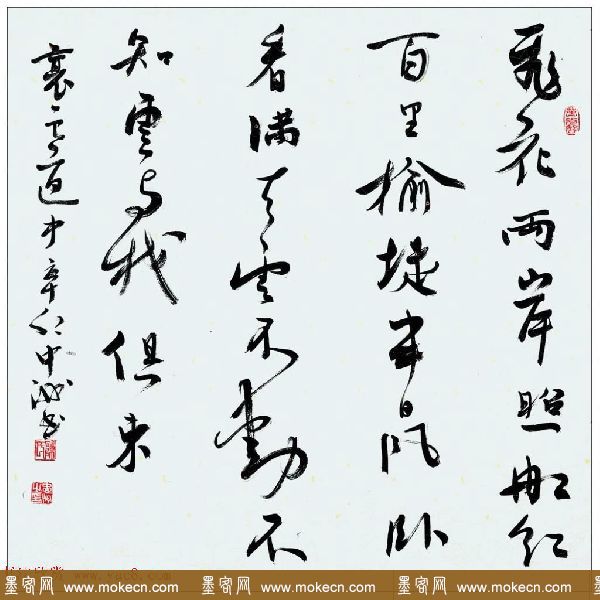 飛花兩岸照船红
百里榆堤半日風卧
看满天雲不動不
知雲与我俱東
襄邑道中辛
墨客网 www.mokecn.com 墨客网 www.mokecn.com 墨客网 www.mokecn.com